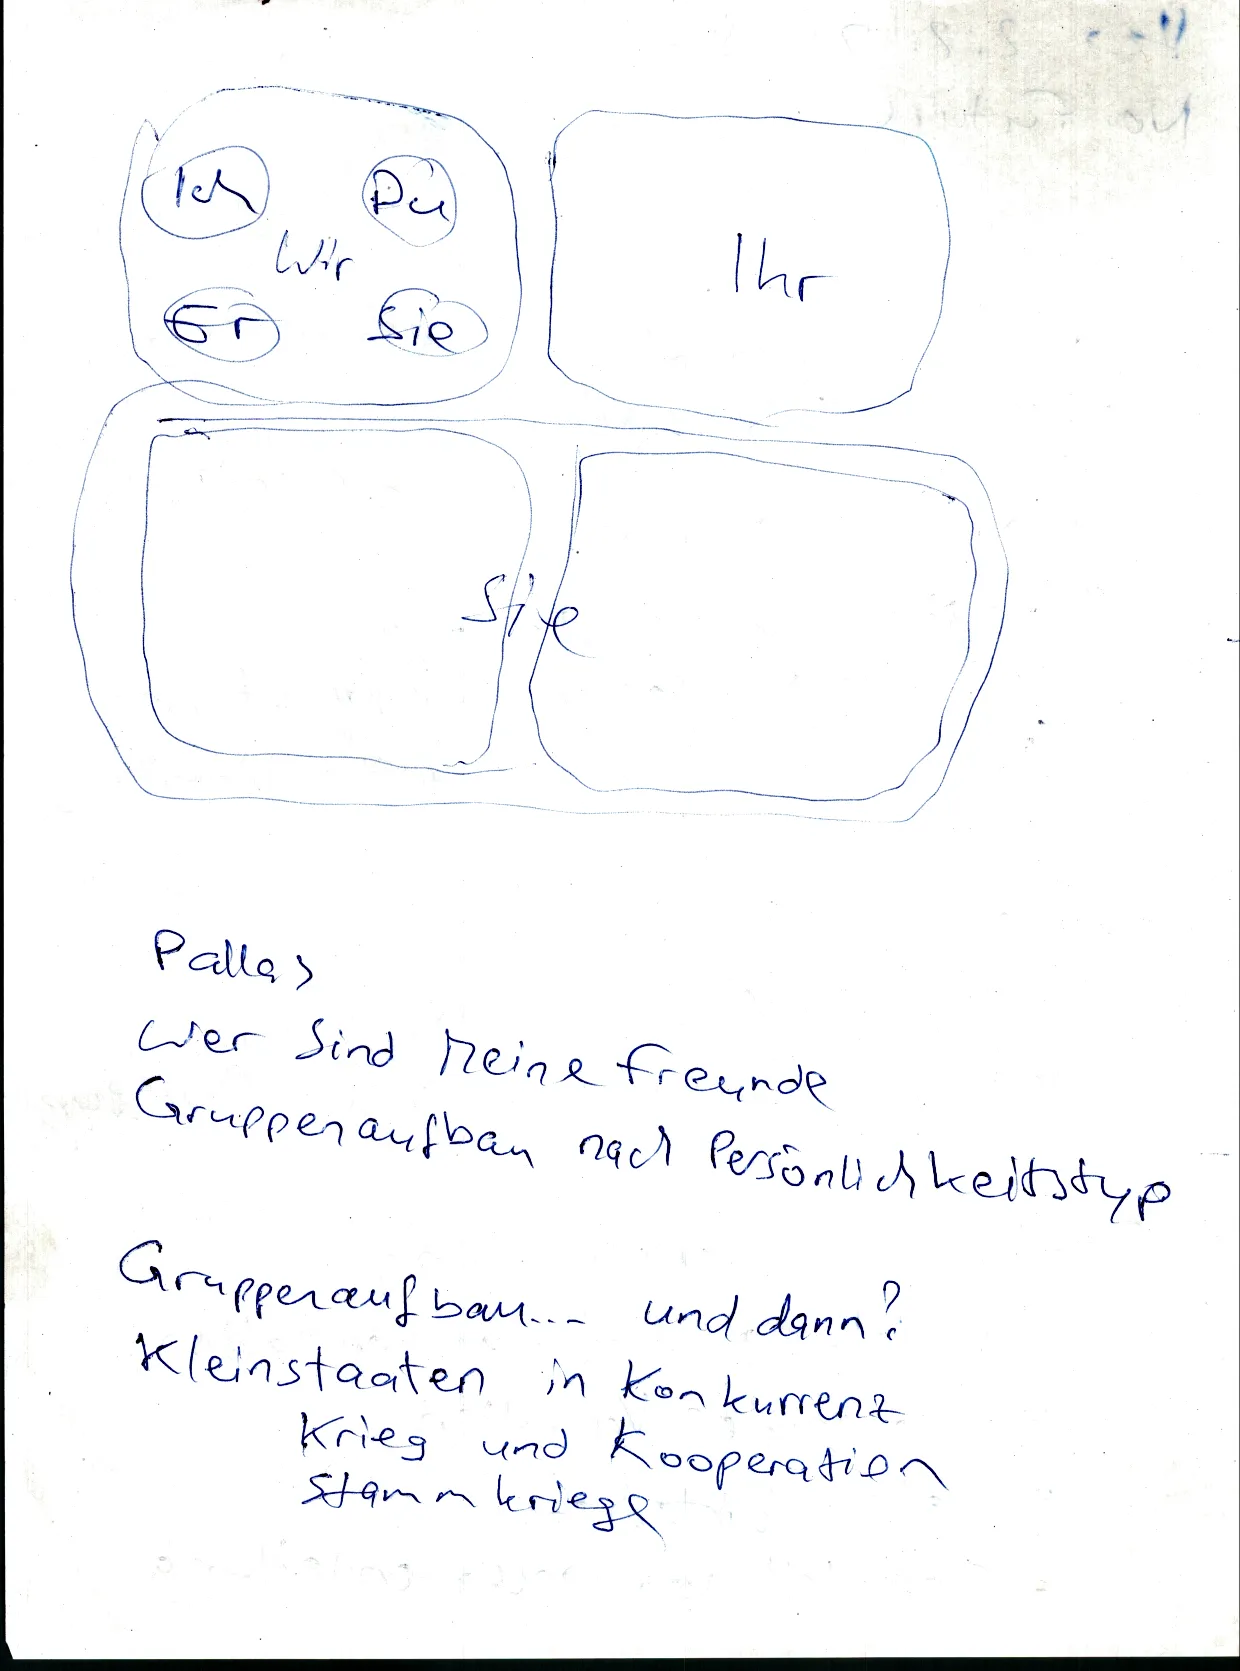 Ich Du
Wir
Er Sie
Ihr
Sie
Pallas
Wer sind Meine Freunde
Gruppenaufbau nach Persönlichkeitstyp
Gruppenaufbau... und dann?
Kleinstaaten in Konkurrenz
Krieg und Kooperation
Stammkriege